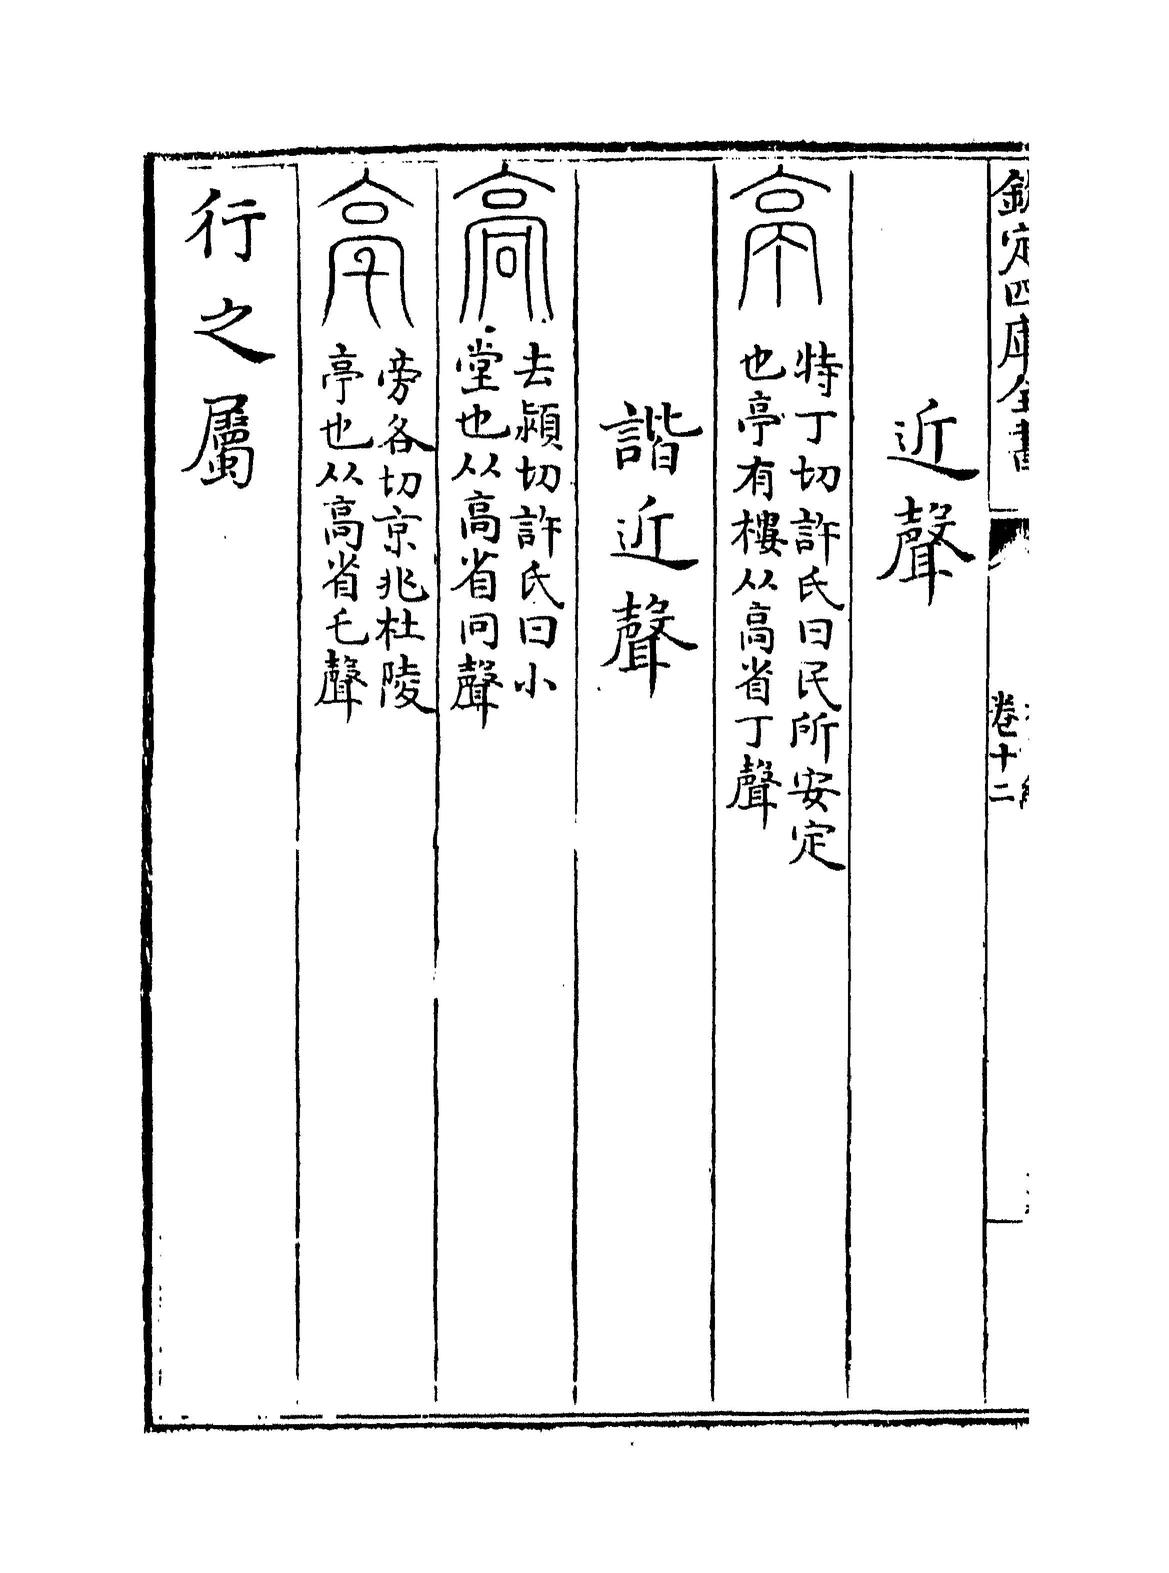 欽定四庫全書
卷十二
近聲
亭
特丁切許氏曰民所安定
也亭有樓从高省丁聲
諧近聲
高
去潁切許氏曰小
堂也从高省冋聲
亳
旁各切京兆杜陵
亭也从高省乇聲
行之屬